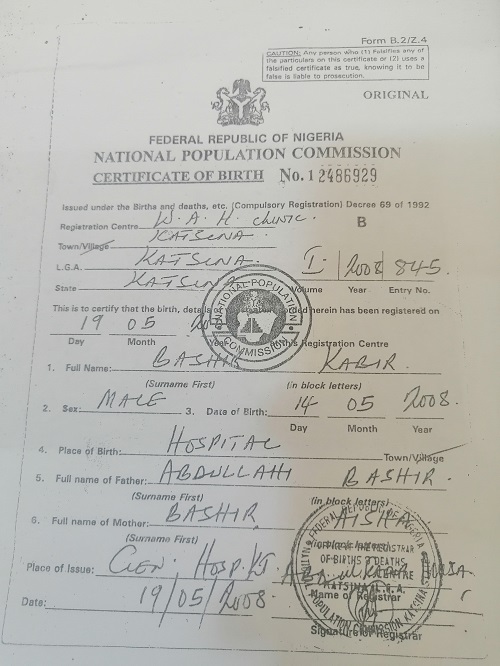 Form B.2/Z.4
CAUTION: Any person who (1) Falsifies any of
the particulars on this certificate or (2) uses a
falsified certificate as true, knowing it to be
false is liable to prosecution.
ORIGINAL
FEDERAL REPUBLIC OF NIGERIA
NATIONAL POPULATION COMMISSION
CERTIFICATE OF BIRTH No.12486929
Issued under the Births and deaths, etc. (Compulsory Registration) Decree 69 of 1992
Registration Centre W. A. H. CLINIC. B
Town/Village KATSINA.
L.G.A. KATSINA. I 2008 845.
State KATSINA Volume Year Entry No.
NATIONAL POPULATION COMMISSION
This is to certify that the birth, herein has been registered on
19 05 Registration Centre
Day Month
1. Full Name: BASHIR KABIR.
(Surname First) (in block letters)
2. Sex: MALE 3. Date of Birth: 14 05 2008.
Day Month Year
4. Place of Birth: HOSPITAL Town/Village
5. Full name of Father: ABDULLAHI BASHIR.
(Surname First) (in block letters)
6. Full name of Mother: BASHIR AISHA
(Surname First)
Place of Issue: GEN. HOSP. KT.
Name of Registrar
Date: 19/05/2008.
Signature of Registrar
OFFICE OF THE REGISTRAR
OF BIRTHS & DEATHS
KATSINA L.G.A.